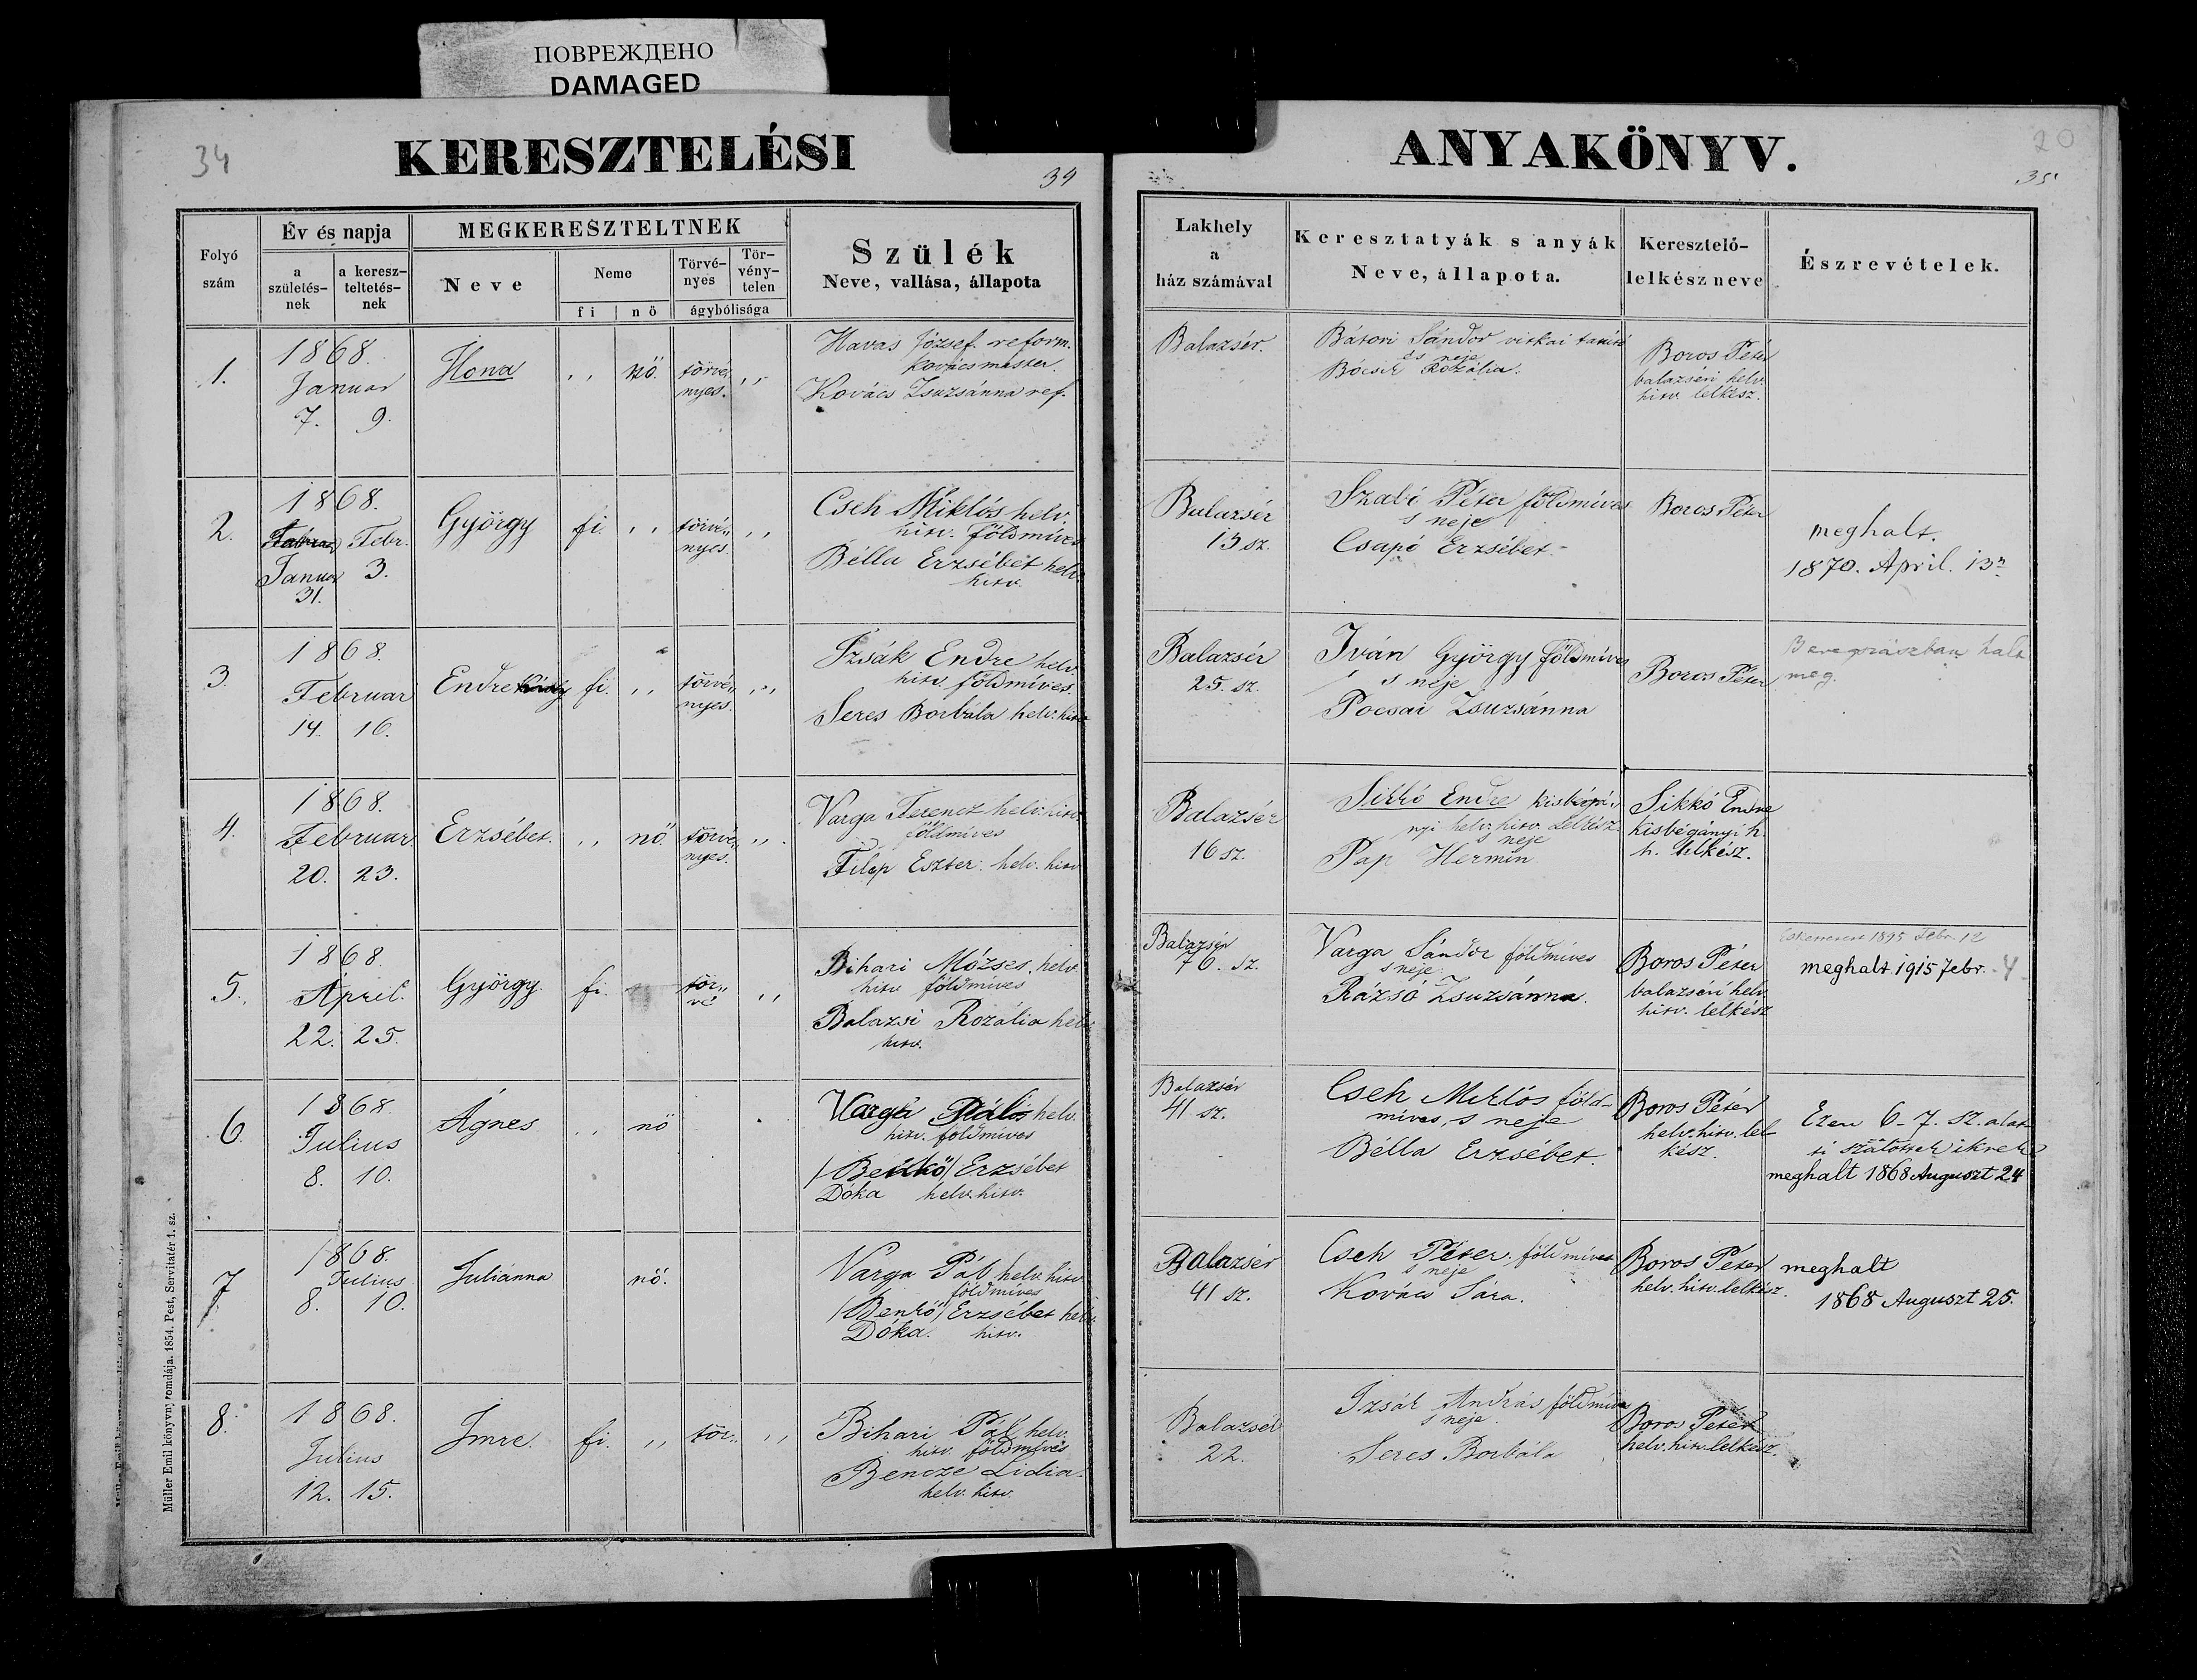 ПОВРЕЖДЕНО
DAMAGED
34
KERESZTELÉSI
34
Folyó szám
Év és napja
a születés- nek
a keresz- teltetés- nek
MEGKERESZTELTNEK
Neve
Neme
fi
nő
Törvé- nyes
Tör- vény- telen
ágybólisága
Szülék
Neve, vallása, állapota
1.
1868.
Januar
7. 9.
Ilona
,, nő. törvé„ ,,
nyes.
Havas József reform.
kovácsmester.
Kovács Zsuzsánna ref.
2.
1868.
Februar Febr.
Januar 3.
31.
György fi. ,, törvé„ ,,
nyes.
Cseh Miklós helv.
hitv. földmíves
Bélla Erzsébet helv.
hitv.
3
1868.
Februar
14. 16.
Endre fi. ,, törvé„ ,,
nyes.
Izsák Endre helv.
hitv. földmíves.
Seres Borbála helv. hitv.
4.
1868.
Februar
20. 23.
Erzsébet. ,, nő. törvé„ ,,
nyes.
Varga Ferencz helv. hitv.
földmíves
Filep Eszter helv. hitv
5.
1868.
April.
22. 25.
György. fi. tör„ ,,
vé
Bihari Mózses helv.
hitv földmíves
Balazsi Rozália helv
hitv.
6.
1868.
Julius
8. 10.
Ágnes ,, nő
Varga Pál helv.
hitv. földmíves
/Benkő/ Erzsébet
Dóka helv. hitv.
7.
1868.
Julius
8. 10.
Juliánna nő.
Varga Pál helv. hitv
földmíves
/Benkő/ Erzsébet helv.
Dóka. hitv.
8.
1868.
Julius
12. 15.
Imre. fi. ,, tör„ ,,
Bihari Pál helv.
hitv. földmíves
Bencze Lidia.
helv. hitv.
Müller Emil könyvnyomdája. 1854. Pest, Servitatér 1. sz.
ANYAKÖNYV.
20
35
Lakhely
a
ház számával
Keresztatyák s anyák
Neve, állapota.
Keresztelő-
lelkész neve
Észrevételek.
Balazsér.
Bátori Sándor vitkai tanító
és neje
Bócsik Rozália.
Boros Péter
balazséri helv.
hitv lelkész.
Balazsér
13 sz.
Szabó Péter földmíves
s neje
Csapó Erzsébet.
Boros Péter
meghalt.
1870. April. 13n
Balazsér
25. sz.
Iván György földmíves
s neje
Pocsai Zsuzsánna
Boros Péter
halt
meg.
Balazsér
16 sz.
Sikkó Endre
nyi helv. hitv. Lelkész
s neje
Pap Hermin
Sikkó Endre
kisbégányi h.
h. lelkész.
Balazsér
76. sz.
Varga Sándor földmíves
s neje
Rázsó Zsuzsánna.
Boros Péter
balazséri helv
hitv. lelkész
1895 Febr. 12
meghalt 1915 febr. 4
Balazsér
41 sz.
Cseh Miklós föld-
míves, s neje
Bélla Erzsébet.
Boros Péter
helv. hitv. lel
kész.
Ezen 6-7. sz. alat
ti szülöttek ikrek
meghalt 1868 Auguszt 24
Balazsér
41 sz.
Cseh Péter földmíves
s neje
Kovács Sára.
Boros Péter
helv. hitv. lelkész.
meghalt
1868 Auguszt 25.
Balazsér
22.
Izsák András földmíves
s neje
Seres Borbála
Boros Péter
helv. hitv. lelkész.